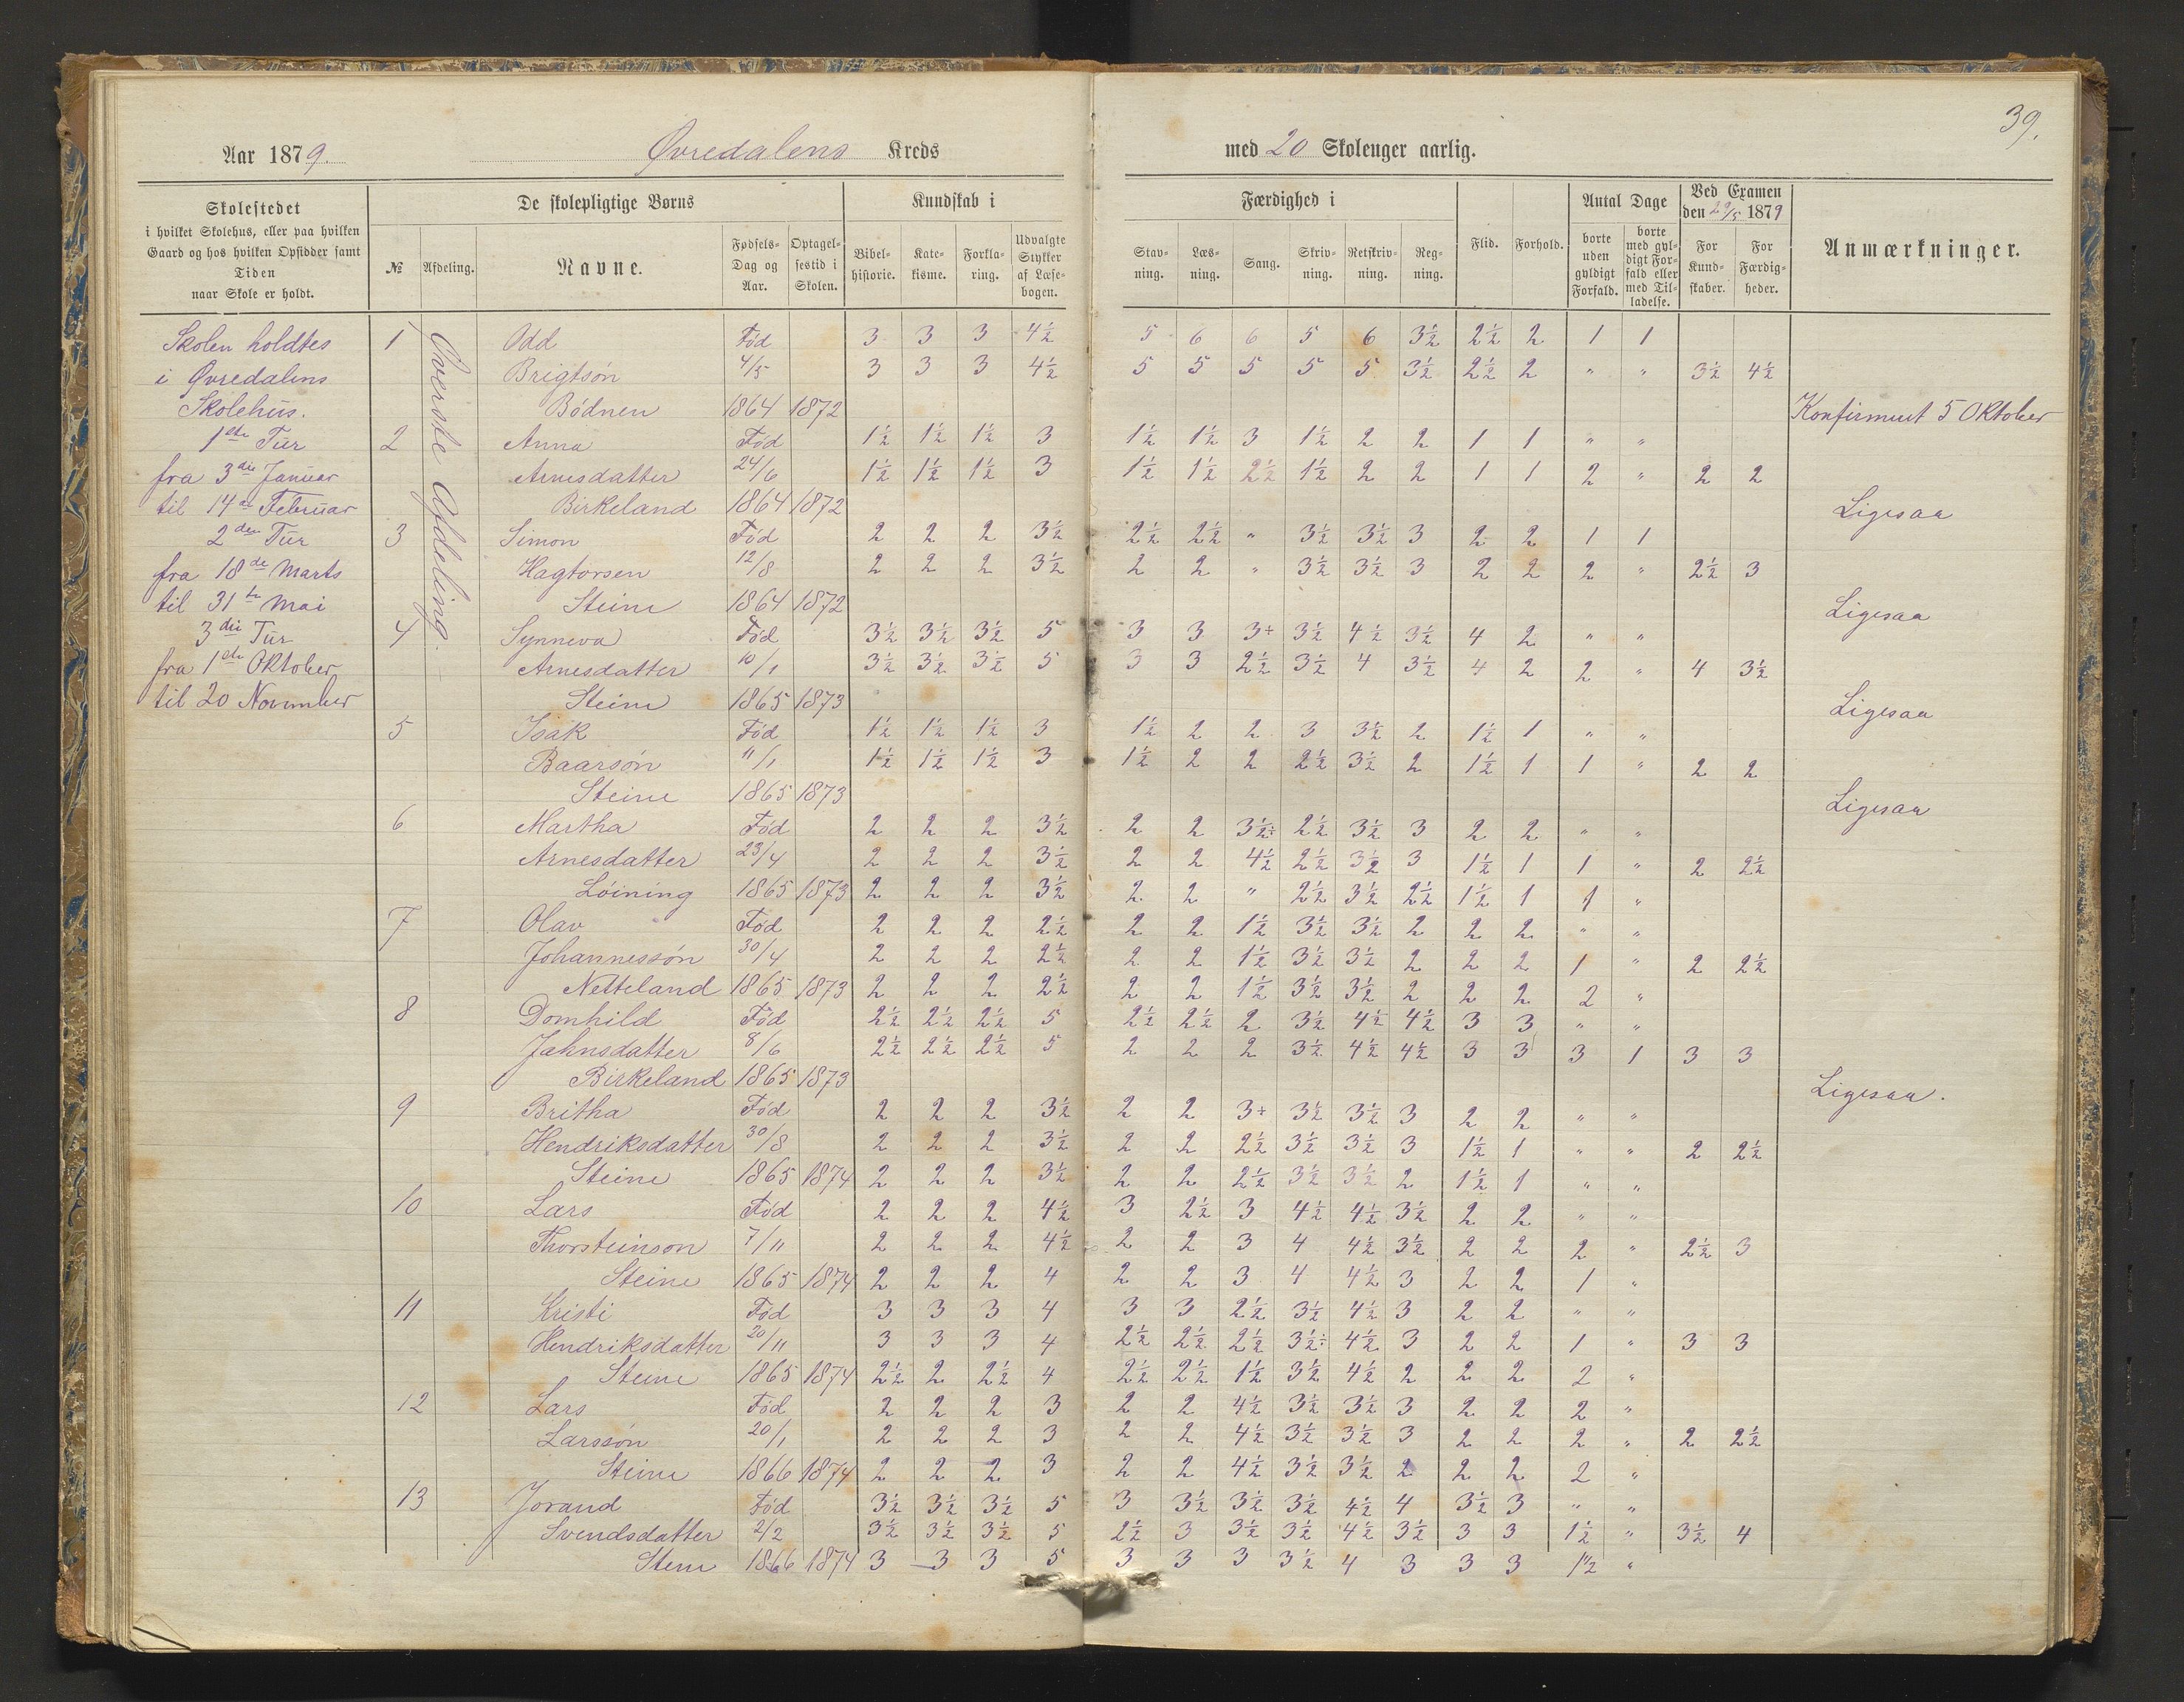 39.
Aar 1879. Øvredalens Kreds med 20 Skoleuger aarlig.
Skolestedet
i hvilket Skolehus, eller paa hvilken
Gaard og hos hvilken Opsidder samt
Tiden
naar Skole er holdt.
De skolepligtige Børns
№ Afdeling. Navne. Fødsels-Dag og Aar. Optagelsestid i Skolen.
Kundskab i
Bibelhistorie. Katekisme. Forklaring. Udvalgte Stykker af Læsebogen.
Færdighed i
Stavning. Læsning. Sang. Skrivning. Retskrivning. Regning.
Flid. Forhold.
Antal Dage
borte uden gyldigt Forfald. borte med gyldigt Forfald eller med Tilladelse.
Ved Examen den 29/5 1879
For Kundskaber. For Færdigheder.
Anmærkninger.
Skolen holdtes
i Øvredalens
Skolehus.
1ste Tur
fra 3die Januar
til 14de Februar
2den Tur
fra 18de Marts
til 31te Mai
3die Tur
fra 1ste Oktober
til 20 November
Øverste Afdeling.
1 Odd Fød 3 3 3 4½ 5 6 6 5 6 3½ 2½ 2 1 1
Brigtsøn 4/5 3 3 3 4½ 5 5 5 5 5 3½ 2½ 2 " " 3½ 4½
Bødnen 1864 1872 Konfirmeret 5 Oktober
2 Anna Fød 1½ 1½ 1½ 3 1½ 1½ 3 1½ 2 2 1 1 " "
Arnesdatter 24/6 1½ 1½ 1½ 3 1½ 1½ 2½ 1½ 2 2 1 1 2 " 2 2
Birkeland 1864 1872 Ligesaa
3 Simon Fød 2 2 2 3½ 2½ 2½ " 3½ 3½ 3 2 2 1 1
Hagtorsen 12/8 2 2 2 3½ 2 2 " 3½ 3½ 3 2 2 2 " 2½ 3
Steine 1864 1872 Ligesaa
4 Synneva Fød 3½ 3½ 3½ 5 3 3 3÷ 3½ 4½ 3½ 4 2 " "
Arnesdatter 10/1 3½ 3½ 3½ 5 3 3 2½ 3½ 4 3½ 4 2 2 " 4 3½
Steine 1865 1873 Ligesaa
5 Isak Fød 1½ 1½ 1½ 3 1½ 2 2 3 3½ 2 1½ 1 " "
Baarsøn 11/1 1½ 1½ 1½ 3 1½ 2 2 2½ 3½ 2 1½ 1 1 " 2 2
Steine 1865 1873 Ligesaa
6 Martha Fød 2 2 2 3½ 2 2 3½÷ 2½ 3½ 3 2 2 " "
Arnesdatter 23/4 2 2 2 3½ 2 2 4½ 2½ 3½ 3 1½ 1 1 " 2 2½
Løining 1865 1873 2 2 2 3½ 2 2 " 2½ 3½ 2½ 1½ 1 1 "
7 Olav Fød 2 2 2 2½ 2 2 1½ 3½ 3½ 2 2 2 " "
Johannessøn 30/4 2 2 2 2½ 2 2 1½ 3½ 3½ 2 2 2 1 " 2 2½
Netteland 1865 1873 2 2 2 2½ 2 2 1½ 3½ 3½ 2 2 2 2 "
8 Domhild Fød 2½ 2½ 2½ 5 2½ 2½ 2 3½ 4½ 4½ 3 3 " "
Jahnsdatter 8/6 2½ 2½ 2½ 5 2 2 2 3½ 4½ 4½ 3 3 3 1 3 3
Birkeland 1865 1873 Ligesaa.
9 Britha Fød 2 2 2 3½ 2 2 3÷ 3½ 3½ 3 2 2 " "
Hendriksdatter 30/8 2 2 2 3½ 2 2 2½ 3½ 3½ 3 1½ 1 " " 2 2½
Steine 1865 1874 2 2 2 3½ 2 2 2½ 3½ 3½ 2 1½ 1 " "
10 Lars Fød 2 2 2 4½ 3 2½ 3 4½ 4½ 3½ 2 2 " "
Thorsteinson 7/11 2 2 2 4½ 2 2 3 4 4½ 3½ 2 2 2 " 2½ 3
Steine 1865 1874 2 2 2 4 2 2 3 4 4½ 3 2 2 1 "
11 Kristi Fød 3 3 3 4 3 3 2½ 3½ 4½ 3 2 2 " "
Hendriksdatter 20/11 3 3 3 4 2½ 2½ 2½ 3½÷ 4½ 3 2 2 1 " 3 3
Steine 1865 1874 2½ 2 2½ 4 2½ 2½ 1½ 3½ 4½ 2 2 2 2 "
12 Lars Fød 2 2 2 3 2 2 4½ 3½ 3½ 3 2 2 2 "
Larssøn 20/1 2 2 2 3 2 2 4½ 3½ 3½ 3 2 2 2 " 2 2½
Steine 1866 1874 2 2 2 3 2 2 4½ 3½ 3½ 2 2 2 2 "
13 Jorand Fød 3½ 3½ 3½ 5 3 3½ 3½ 3½ 4½ 4 3½ 3 " "
Svendsdatter 2/2 3½ 3½ 3½ 5 2½ 3 3½ 3½ 4½ 3½ 3 3 1½ " 3½ 4
Stein 1866 1874 3 3 3 5 3 3 3 3½ 4 3 3 3 1½ "